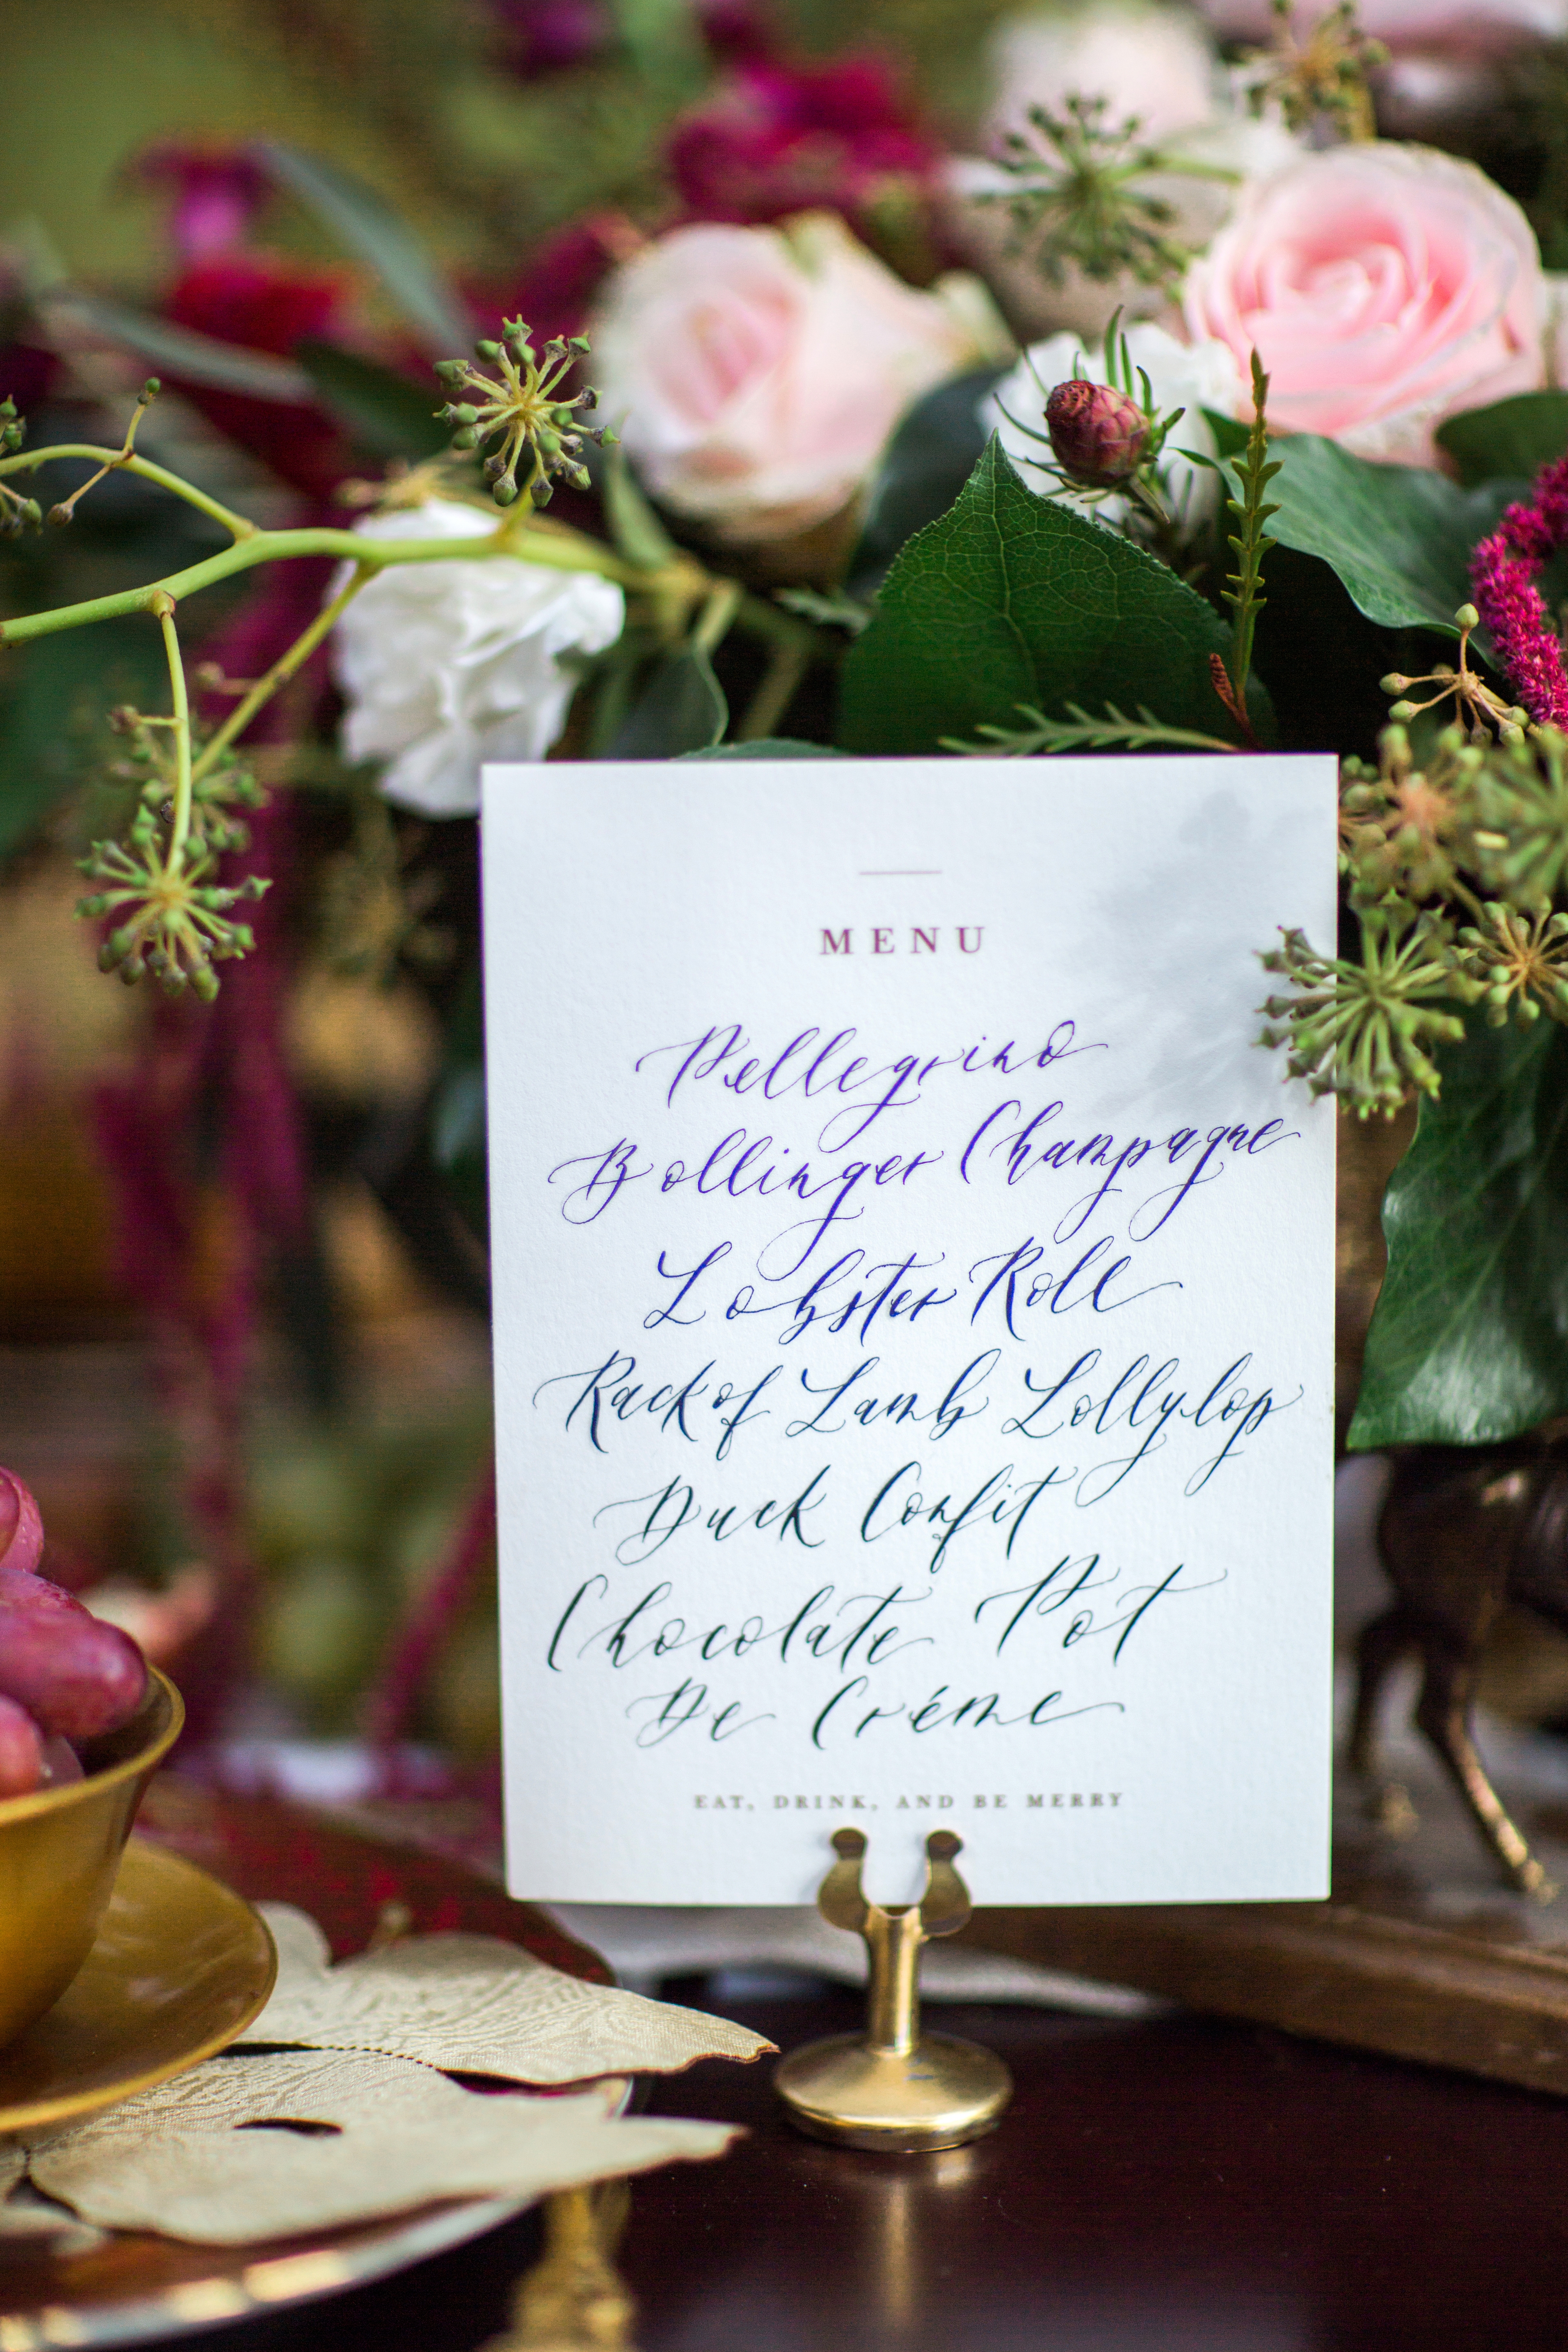 MENU
Pellegrino
Bollinger Champagne
Lobster Roll
Rack of Lamb Lollylop
Duck Confit
Chocolate Pot
De Créme
EAT, DRINK, AND BE MERRY